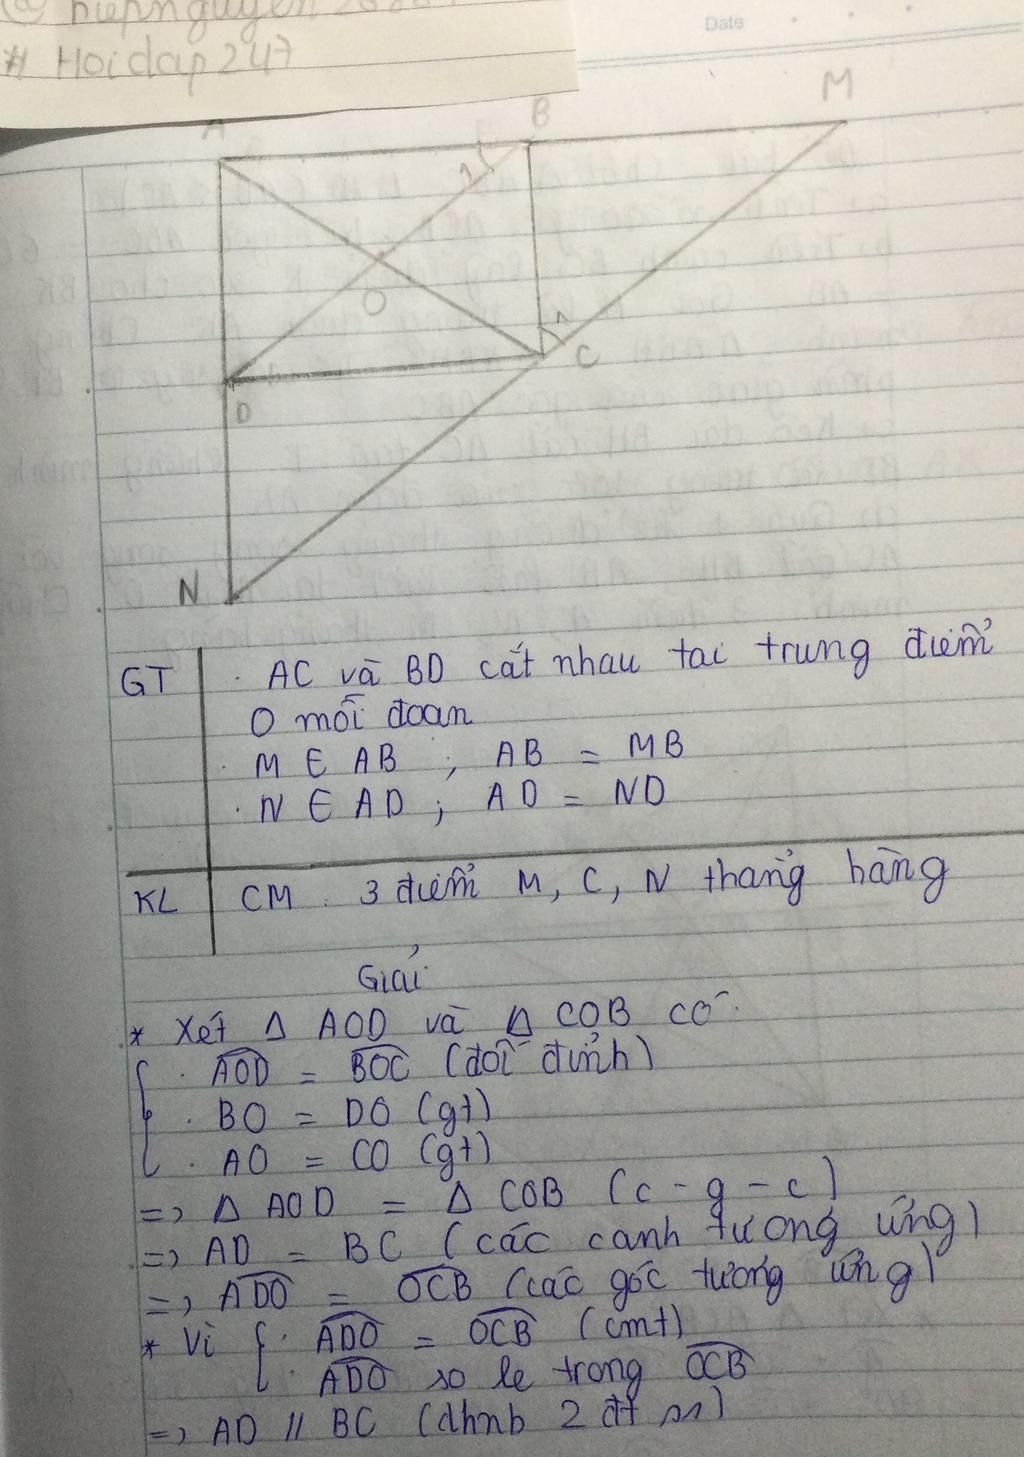 # Hoidap247
Date
A
B
M
O
C
D
N
GT
. AC và BD cắt nhau tai trung điểm
O mỗi đoan
. M ∈ AB ; AB = MB
. N ∈ AD ; AD = ND
KL
CM . 3 điểm M, C, N thẳng hàng
Giải
* Xét Δ AOD và Δ COB có
. AOD = BOC (đối đỉnh)
. BO = DO (gt)
. AO = CO (gt)
=> Δ AOD = Δ COB (c - g - c)
=> AD = BC (các canh tương ứng)
=> ADO = OCB (các góc tương ứng)
* Vì { . ADO = OCB (cmt)
. ADO so le trong OCB
=> AD // BC (dhnb 2 đt ss)